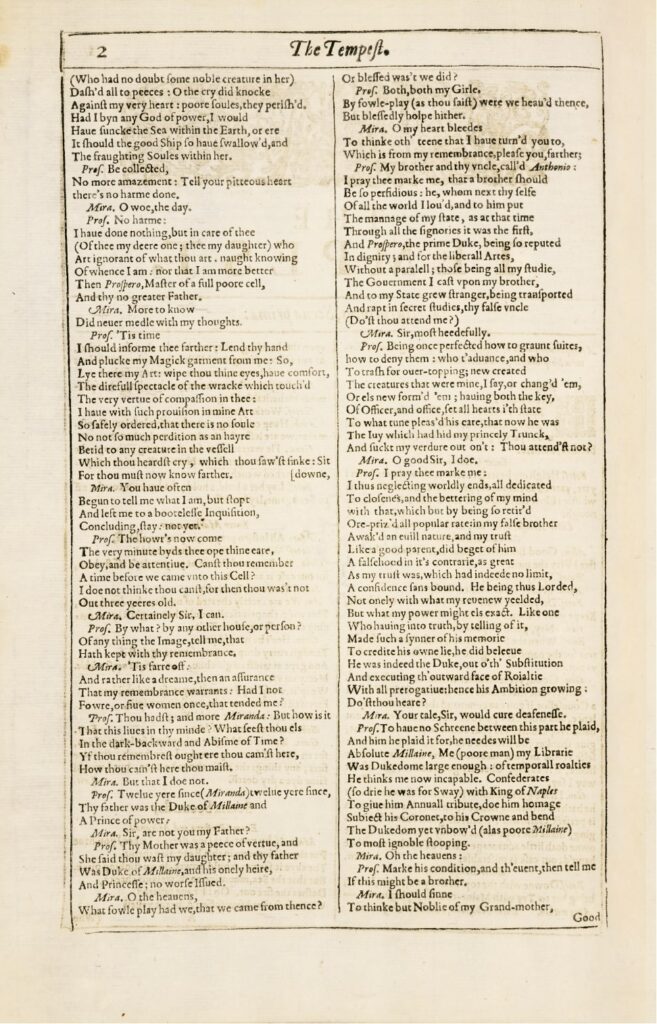 2
The Tempest.
(Who had no doubt some noble creature in her)
Dash'd all to peeces : O the cry did knocke
Against my very heart : poore soules, they perish'd.
Had I byn any God of power, I would
Haue suncke the Sea within the Earth, or ere
It should the good Ship so haue swallow'd, and
The fraughting Soules within her.
Pros. Be collected,
No more amazement : Tell your pitteous heart
there's no harme done.
Mira. O woe, the day.
Pros. No harme :
I haue done nothing, but in care of thee
(Of thee my deere one ; thee my daughter) who
Art ignorant of what thou art. naught knowing
Of whence I am : nor that I am more better
Then Prospero, Master of a full poore cell,
And thy no greater Father.
Mira. More to know
Did neuer medle with my thoughts.
Pros. 'Tis time
I should informe thee farther : Lend thy hand
And plucke my Magick garment from me : So,
Lye there my Art : wipe thou thine eyes, haue comfort,
The direfull spectacle of the wracke which touch'd
The very vertue of compassion in thee :
I haue with such prouision in mine Art
So safely ordered, that there is no soule
No not so much perdition as an hayre
Betid to any creature in the vessell
Which thou heardst cry, which thou saw'st sinke : Sit
For thou must now know farther. [downe,
Mira. You haue often
Begun to tell me what I am, but stopt
And left me to a bootelesse Inquisition,
Concluding, stay : not yet.
Pros. The howr's now come
The very minute byds thee ope thine eare,
Obey, and be attentiue. Canst thou remember
A time before we came vnto this Cell?
I doe not thinke thou canst, for then thou was't not
Out three yeeres old.
Mira. Certainely Sir, I can.
Pros. By what? by any other house, or person?
Of any thing the Image, tell me, that
Hath kept with thy remembrance.
Mira. 'Tis farre off :
And rather like a dreame, then an assurance
That my remembrance warrants : Had I not
Fowre, or fiue women once, that tended me?
Pros. Thou hadst ; and more Miranda : But how is it
That this liues in thy minde? What seest thou els
In the dark-backward and Abisme of Time?
Yf thou remembrest ought ere thou cam'st here,
How thou cam'st here thou maist.
Mira. But that I doe not.
Pros. Twelue yere since (Miranda) twelue yere since,
Thy father was the Duke of Millaine and
A Prince of power :
Mira. Sir, are not you my Father?
Pros. Thy Mother was a peece of vertue, and
She said thou wast my daughter ; and thy father
Was Duke of Millaine, and his onely heire,
And Princesse ; no worse Issued.
Mira. O the heauens,
What fowle play had we, that we came from thence?
Or blessed was't we did?
Pros. Both, both my Girle.
By fowle-play (as thou saist) were we heau'd thence,
But blessedly holpe hither.
Mira. O my heart bleedes
To thinke oth' teene that I haue turn'd you to,
Which is from my remembrance, please you, farther ;
Pros. My brother and thy vncle, call'd Anthonio :
I pray thee marke me, that a brother should
Be so perfidious : he, whom next thy selfe
Of all the world I lou'd, and to him put
The mannage of my state, as at that time
Through all the signories it was the first,
And Prospero, the prime Duke, being so reputed
In dignity ; and for the liberall Artes,
Without a paralell ; those being all my studie,
The Gouernment I cast vpon my brother,
And to my State grew stranger, being transported
And rapt in secret studies, thy false vncle
(Do'st thou attend me?)
Mira. Sir, most heedefully.
Pros. Being once perfected how to graunt suites,
how to deny them : who t'aduance, and who
To trash for ouer-topping ; new created
The creatures that were mine, I say, or chang'd 'em,
Or els new form'd 'em ; hauing both the key,
Of Officer, and office, set all hearts i'th state
To what tune pleas'd his eare, that now he was
The Iuy which had hid my princely Trunck,
And suckt my verdure out on't : Thou attend'st not?
Mira. O good Sir, I doe.
Pros. I pray thee marke me :
I thus neglecting worldly ends, all dedicated
To closenes, and the bettering of my mind
with that, which but by being so retir'd
Ore-priz'd all popular rate: in my false brother
Awak'd an euill nature, and my trust
Like a good parent, did beget of him
A falsehood in it's contrarie, as great
As my trust was, which had indeede no limit,
A confidence sans bound. He being thus Lorded,
Not onely with what my reuenew yeelded,
But what my power might els exact. Like one
Who hauing into truth, by telling of it,
Made such a synner of his memorie
To credite his owne lie, he did beleeue
He was indeed the Duke, out o'th' Substitution
And executing th'outward face of Roialtie
With all prerogatiue : hence his Ambition growing :
Do'st thou heare?
Mira. Your tale, Sir, would cure deafenesse.
Pros. To haue no Schreene between this part he plaid,
And him he plaid it for, he needes will be
Absolute Millaine, Me (poore man) my Librarie
Was Dukedome large enough : of temporall roalties
He thinks me now incapable. Confederates
(so drie he was for Sway) with King of Naples
To giue him Annuall tribute, doe him homage
Subiect his Coronet, to his Crowne and bend
The Dukedom yet vnbow'd (alas poore Millaine)
To most ignoble stooping.
Mira. Oh the heauens :
Pros. Marke his condition, and th'euent, then tell me
If this might be a brother.
Mira. I should sinne
To thinke but Noblie of my Grand-mother,
Good